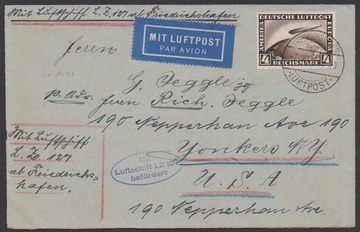 Mit Luftschiff L.Z. 127 ab Friedrichshafen
MIT LUFTPOST
PAR AVION
DEUTSCHE LUFTPOST
4 REICHSMARK 4
LUFTPOST
Herrn
G. Jeggle
p. Adr. Herrn Rich. Jeggle
190 Nepperhan Ave 190
Yonkers NY
U.S.A
190 Nepperhan Ave
Mit Luftschiff
L.Z. 127
ab Friedrichs-
hafen.
Mit
Luftschiff LZ 127
befördert